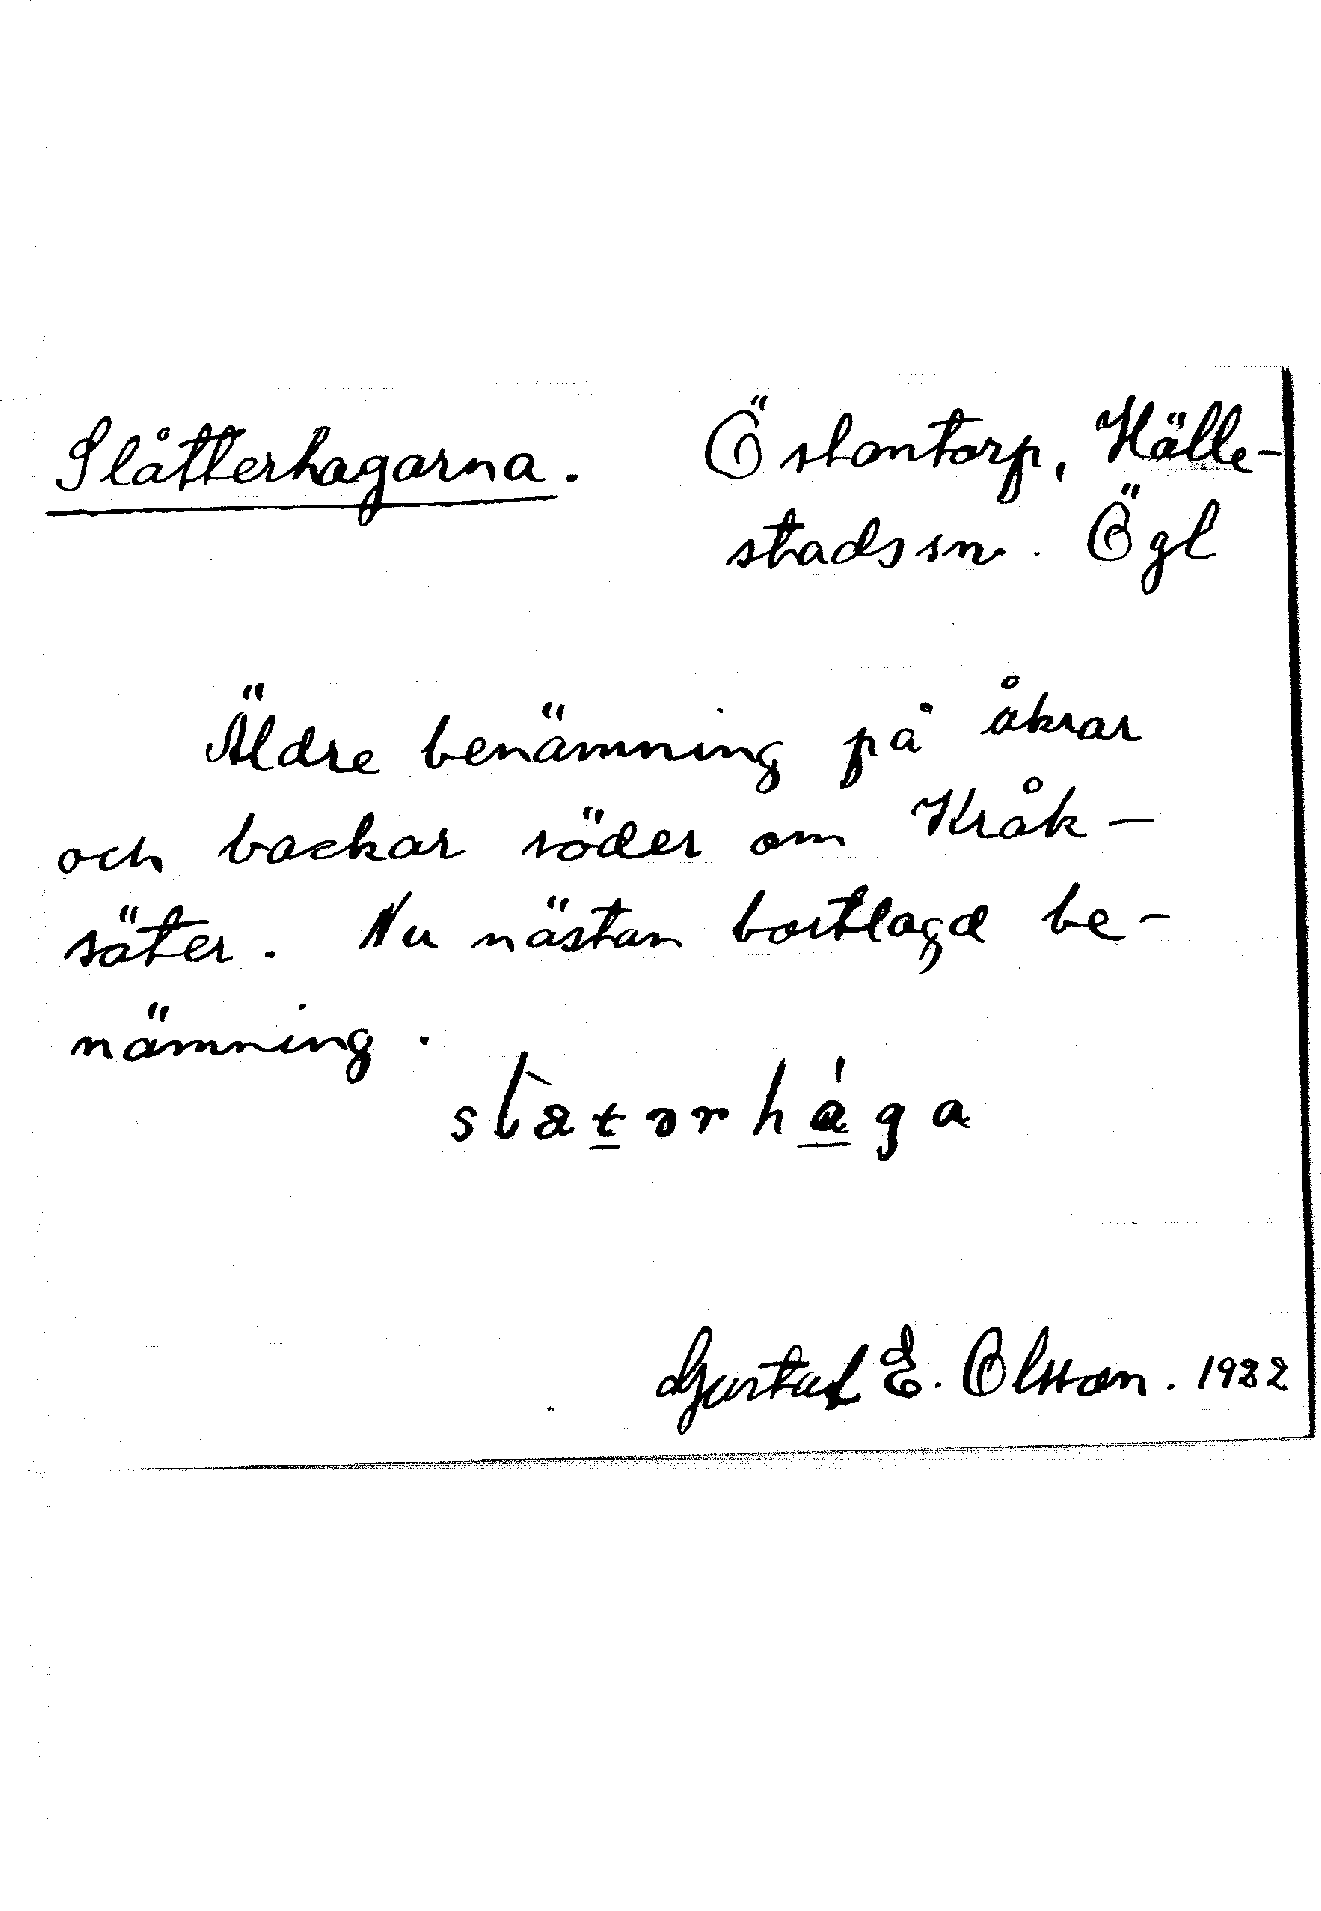 Slåtterhagarna. Östantorp, Hälle-
stads sn. Ögl
Äldre benämning på åkrar
och backar söder om Kråk-
säter. Nu nästan bortlagd be-
nämning.
Gustaf E. Olsson. 1932